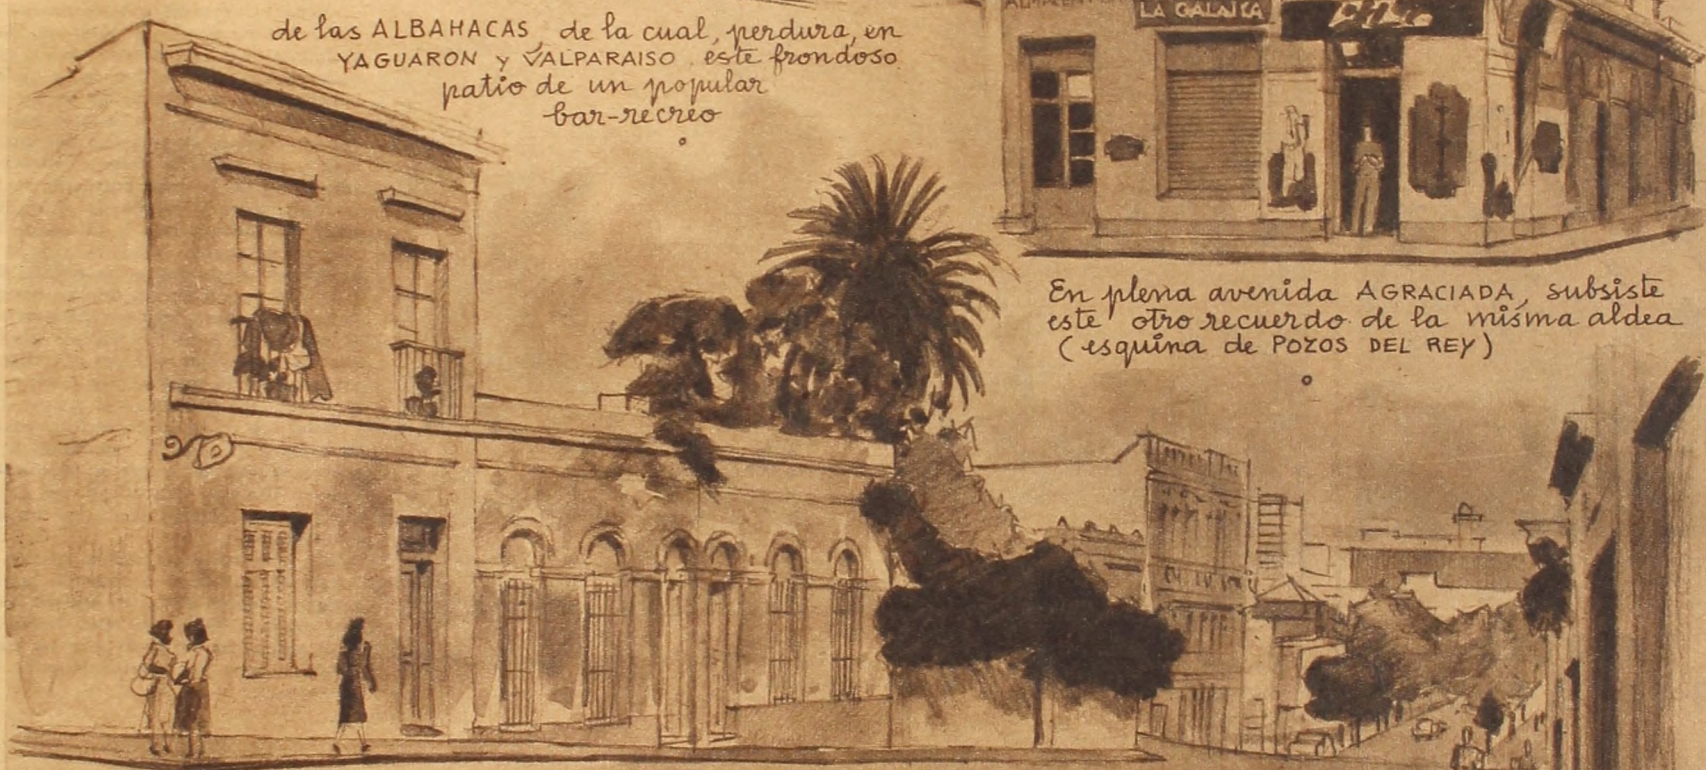 de las ALBAHACAS, de la cual, perdura, en
YAGUARON y VALPARAISO este frondoso
patio de un popular
bar-recreo
LA GALAICA
En plena avenida AGRACIADA, subsiste
este otro recuerdo de la misma aldea
(esquina de POZOS DEL REY)